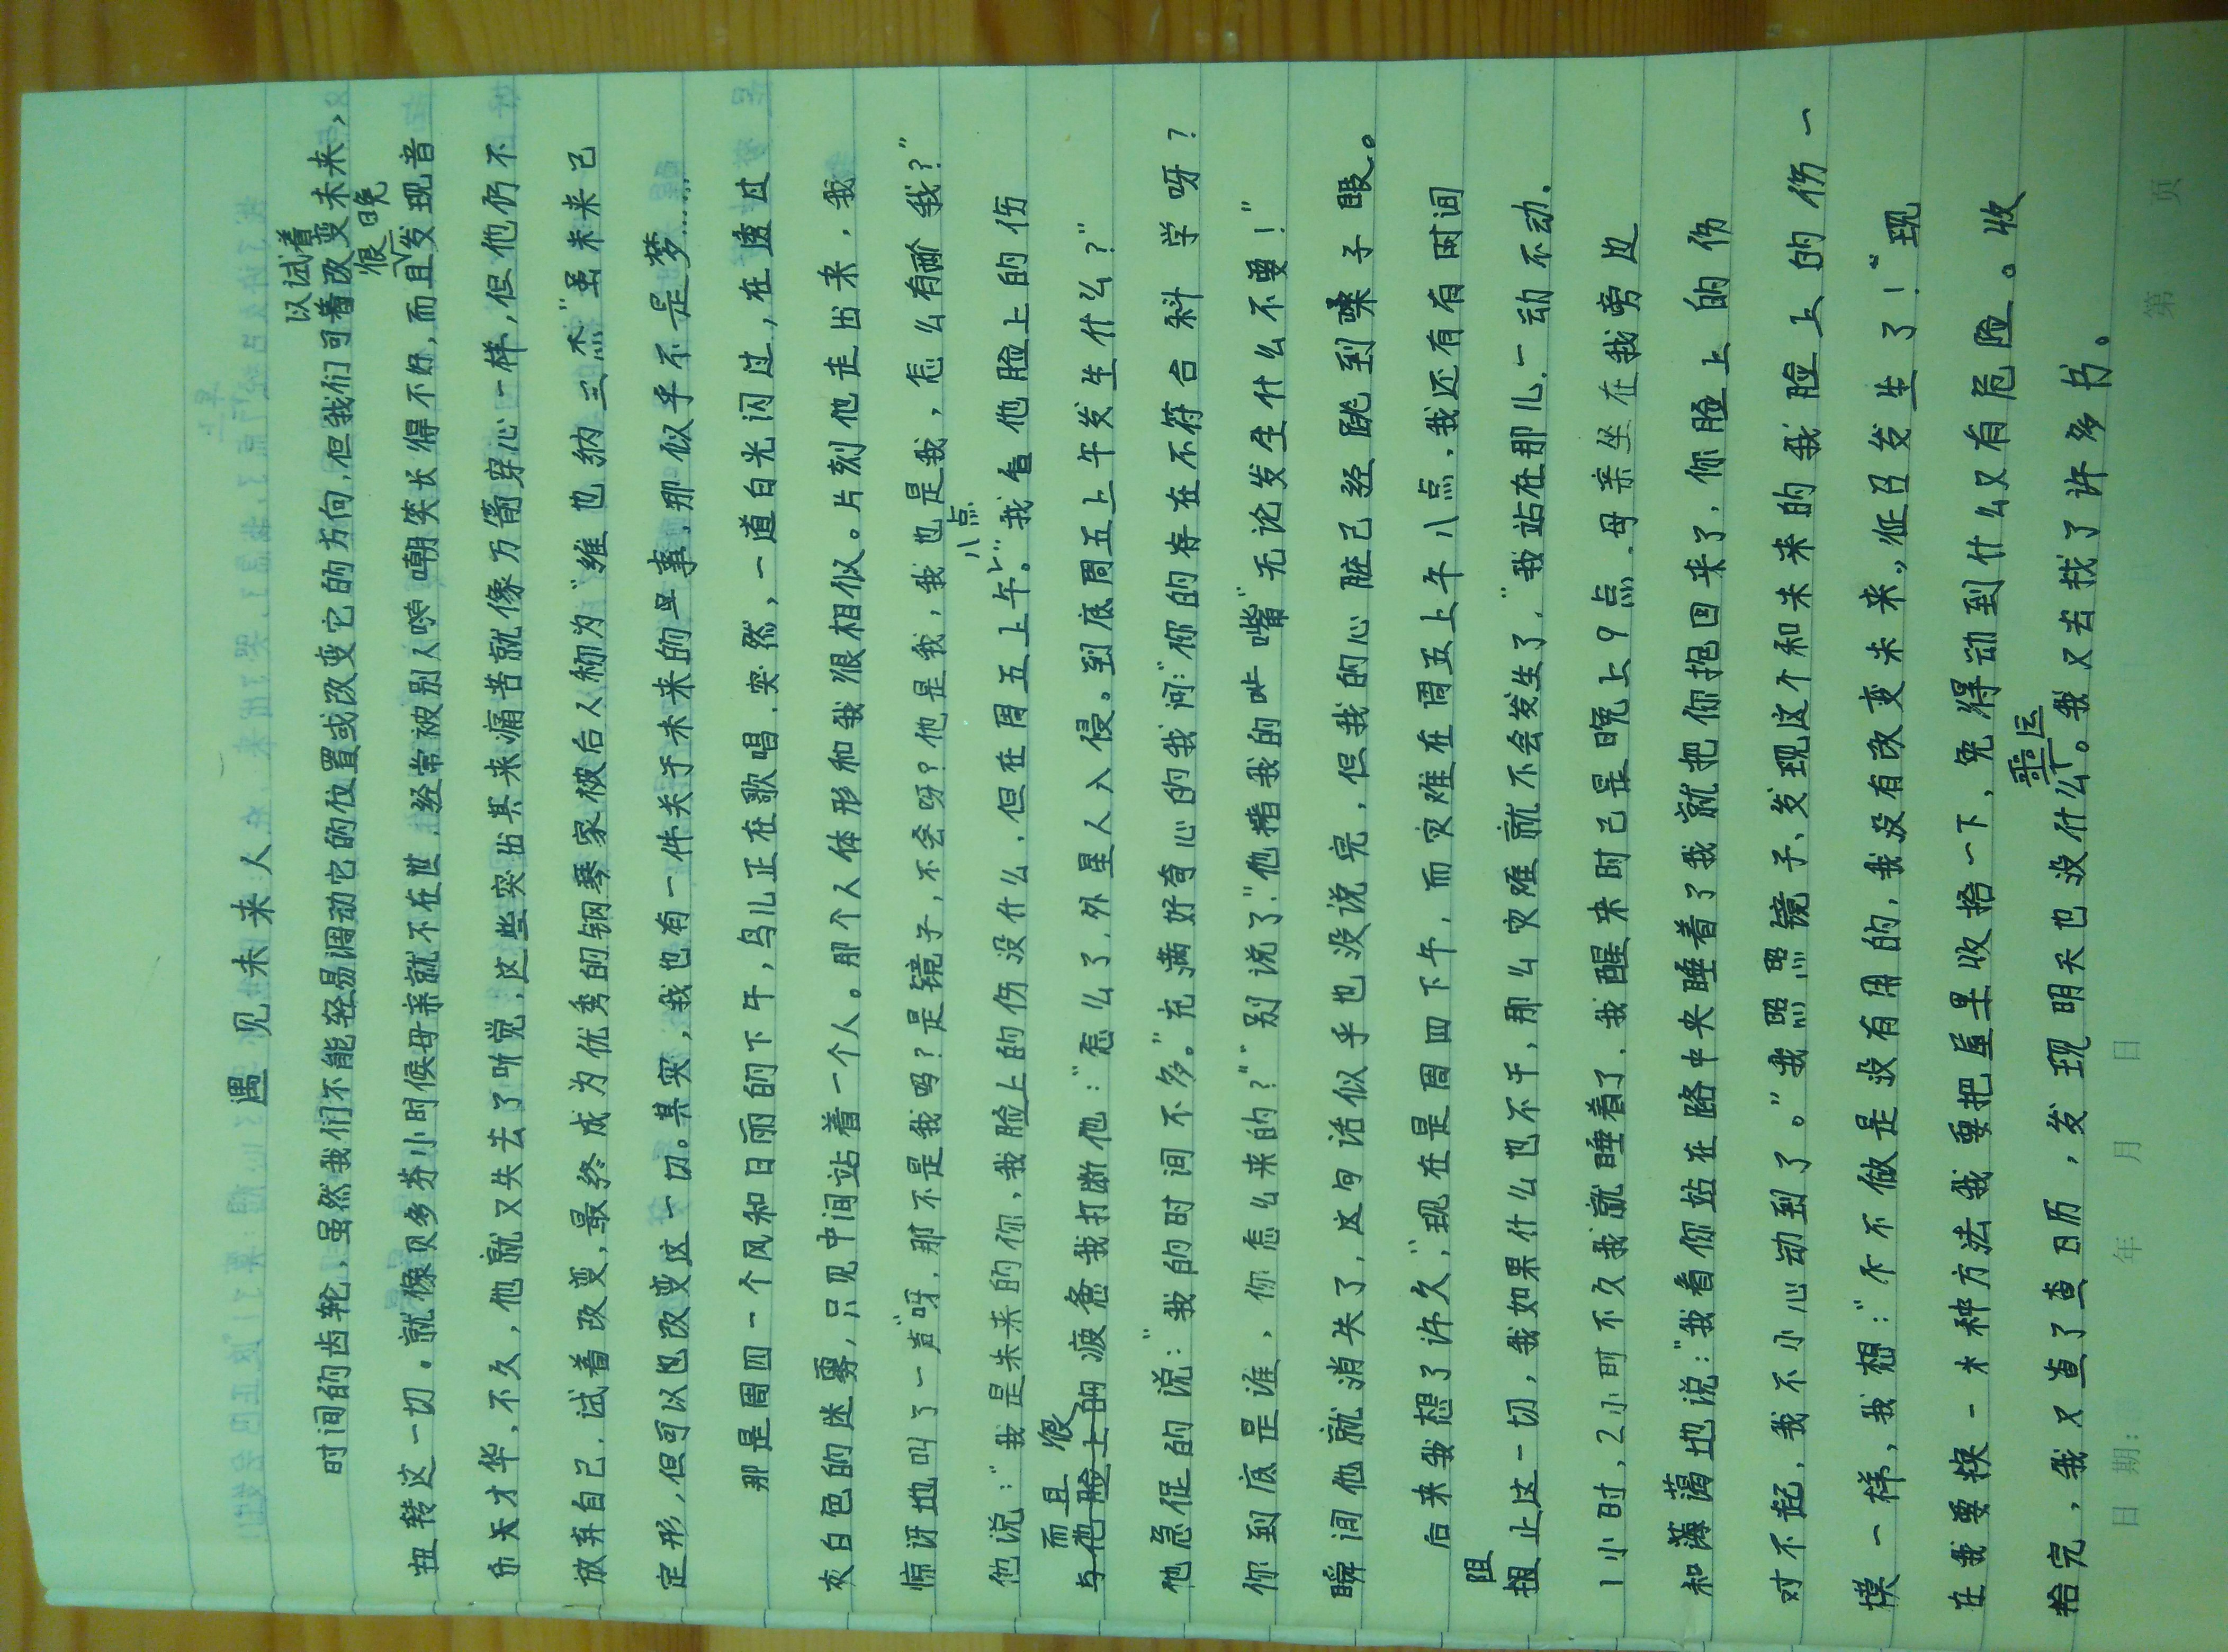 遇见未来人
时间的齿轮，虽然我们不能轻易调动它的位置或改变它的方向，但我们可以试着改变未来，
扭转这一切。就像贝多芬小时候母亲就不在世，经常被别人嘲笑长得不好，而且很晚发现音
乐天才华，不久，他就又失去了听觉，这些突出其来痛苦就像万箭穿心一样，但他仍不
放弃自己，试着改变，最终成为优秀的钢琴家被后人称为“维也纳三杰”虽未来已
定形，但可以也改变这一切。其实，我也有一件关于未来的事，那似乎不是梦……
那是周四一个风和日丽的下午，鸟儿正在歌唱，突然，一道白光闪过，在透过
灰白色的迷雾，只见中间站着一个人。那个人体形和我很相似。片刻他走出来，我
惊讶地叫了一声“呀，那不是我吗？是镜子，不会呀？他是我，我也是我，怎么有两个我？”
他说：“我是未来的你，我脸上的伤没什么，但在周五上午八点。”我看他脸上的伤
而且很疲惫我打断他：“怎么了，外星人入侵。到底周五上午发生什么？”
他急促的说：“我的时间不多。”充满好奇心的我问：“你的存在不符合科学呀？
你到底是谁、你怎么来的？”“别说了。”他捂我的嘴“无论发生什么不要！”
瞬间他就消失了，这句话似乎也没说完，但我的心脏已经跳到嗓子眼。
后来我想了许久，“现在是周四下午，而灾难在周五上午八点，我还有有时间
阻止这一切，我如果什么也不干，那么灾难就不会发生了，”我站在那儿一动不动．
1小时，2小时不久我就睡着了，我醒来时已是晚上9点，母亲坐在我旁边
和蔼地说：“我看你站在路中央睡着了我就把你抱回来了，你脸上的伤
对不起，我不小心动到了。”我照照镜子、发现这个和未来的我脸上的伤一
模一样，我想：“不不做是没有用的，我没有改变未来。，征召发生了！”现
在我要换一种方法我要把屋里收拾一下，免得动到什么又有危险。收
拾完，我又查了查日历，发现明天也没什么噩运。我又去找了许多书。
日期： 年 月 日 第 页